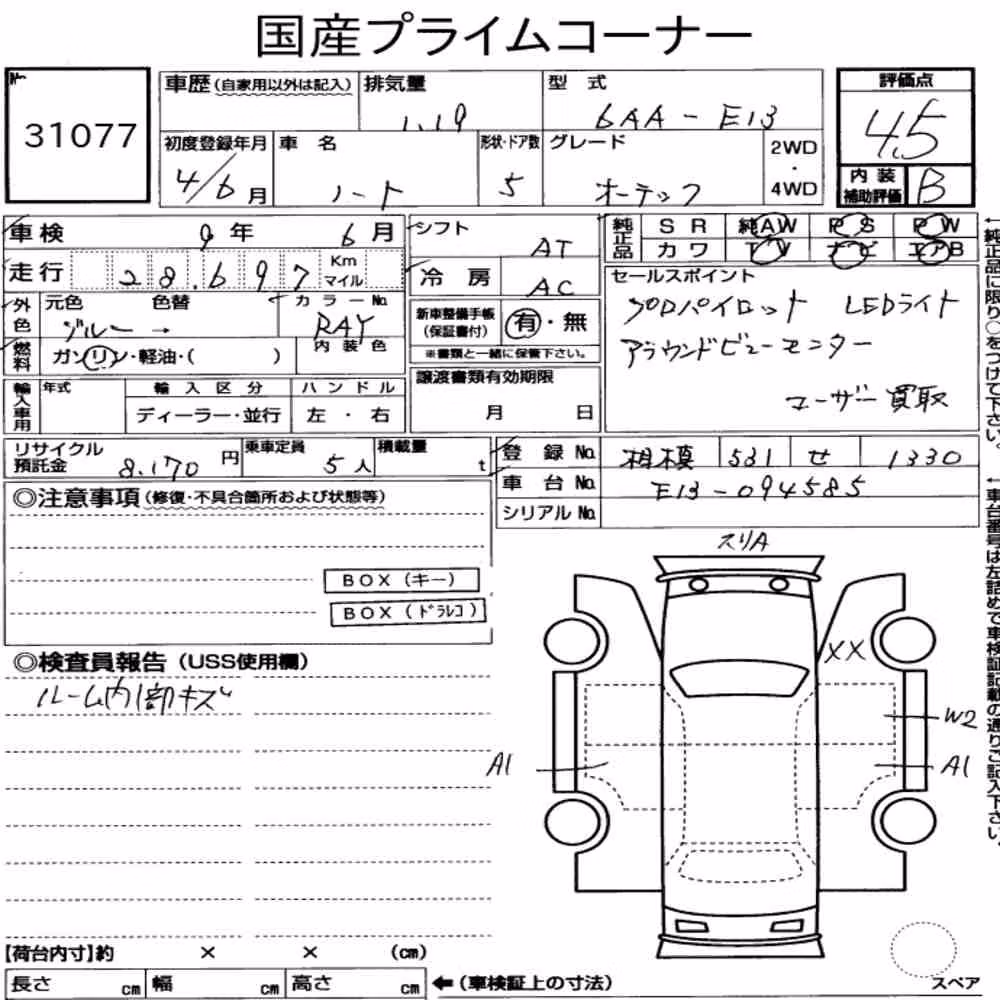 国産プライムコーナー
No.
31077
車歴(自家用以外は記入) 排気量 型式
1.19 6AA-E13
初度登録年月 車名 形状・ドア数 グレード 2WD・4WD
4/6月 ノート 5 オーテック
評価点
4.5
内装補助評価 B
車検 9年 6月
走行 28.697 Km マイル
外色 元色 色替 カラーNo.
ブルー → RAY
内装色
燃料 ガソリン・軽油・( )
シフト AT
冷房 AC
新車整備手帳(保証書付) 有・無
※書類と一緒に保管下さい。
純正品 SR 純AW PS PW
カワ TV ナビ エアB
セールスポイント
プロパイロット LEDライト
アラウンドビューモニター
ユーザー買取
輸入車用 年式 輸入区分 ハンドル
ディーラー・並行 左・右
譲渡書類有効期限
月 日
リサイクル預託金 8.170円 乗車定員 5人 積載量 t
登録No. 相模 531 せ 1330
車台No. E13-094585
シリアルNo.
←純正品に限り○をつけて下さい。
←車台番号は左詰めで車検証記載の通りご記入下さい。
◎注意事項(修復・不具合箇所および状態等)
BOX(キー)
BOX(ドラレコ)
◎検査員報告(USS使用欄)
ルーム内1部キズ
スリA
XX
W2
A1
A1
【荷台内寸】約 × × (cm)
長さ cm 幅 cm 高さ cm ←(車検証上の寸法)
スペア